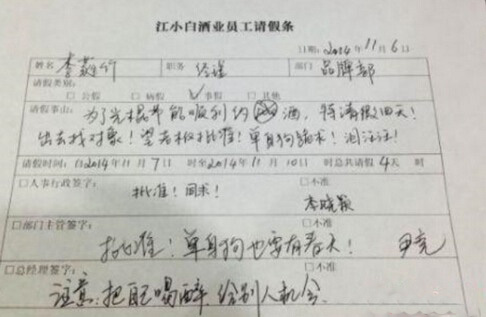 江小白酒业员工请假条
日期: 2014年11月6日
署名 李 竹 职务 经理 部门 品牌部
请假类别:
□公假 □病假 ☑事假 □其他
请假事由: 为了光棍节能顺利约酒,特请假四天!
出去找对象!望老板批准!单身狗跪求!泪汪汪!
请假时间: 自2014年11月7日 时至2014年11月10日 时总共请假4天 时
□人事行政签字: □不准
批准!同求! 李晓颖
□部门主管签字: □不准
批准!单身狗也要有春天! 尹亮
□总经理签字: □不准
注意:把自己喝醉 给别人机会